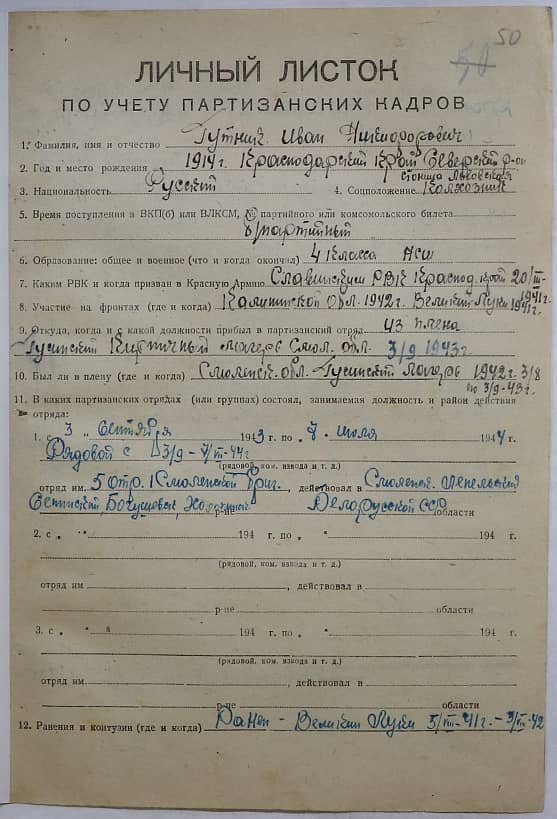 50
ЛИЧНЫЙ ЛИСТОК
ПО УЧЕТУ ПАРТИЗАНСКИХ КАДРОВ
1. Фамилия, имя и отчество Гутник Иван Никифорович
2. Год и место рождения 1914г. Краснодарский край Северский р-он
станица Львовская
3. Национальность Русский 4. Соцположение Колхозник
5. Время поступления в ВКП(б) или ВЛКСМ, № партийного или комсомольского билета
б/партийный
6. Образование: общее и военное (что и когда окончил) 4 класса НСШ
7. Каким РВК и когда призван в Красную Армию Славинским РВК Краснод. край 20/III-
1941г.
8. Участие на фронтах (где и когда) Калининской обл. 1942г. Великие Луки 1941г.
9. Откуда, когда и с какой должности прибыл в партизанский отряд из плена
Гусинский Кирпичный лагерь Смол. обл. 3/9 1943г.
10. Был ли в плену (где и когда) Смоленск. обл. Гусинский лагерь 1942г. 3/8
по 3/9-43г.
11. В каких партизанских отрядах (или группах) состоял, занимаемая должность и район действия
отряда:
1. с 3 „ Сентября 1943 г. по „ 7 „ июля 1944 г.
Рядовой с 3/9 - 7/VII-44г
(рядовой, ком. взвода и т. д.)
отряд им. 5 отр. 1 Смоленской бриг., действовал в Смоленск. Лепельский
Сеннский Богушевск, Холопинич р-не Белорусской ССР области
2. с „ " 194 г. по „ " 194 г.
(рядовой, ком. взвода и т. д.)
отряд им , действовал в
р-не области
3. с „ " 194 г. по „ " 194 г.
(рядовой, ком. взвода и т. д.)
отряд им. , действовал в
р-не области
12. Ранения и контузии (где и когда) Ранен - Великие Луки 5/VIII-41г. - 3/VIII-42